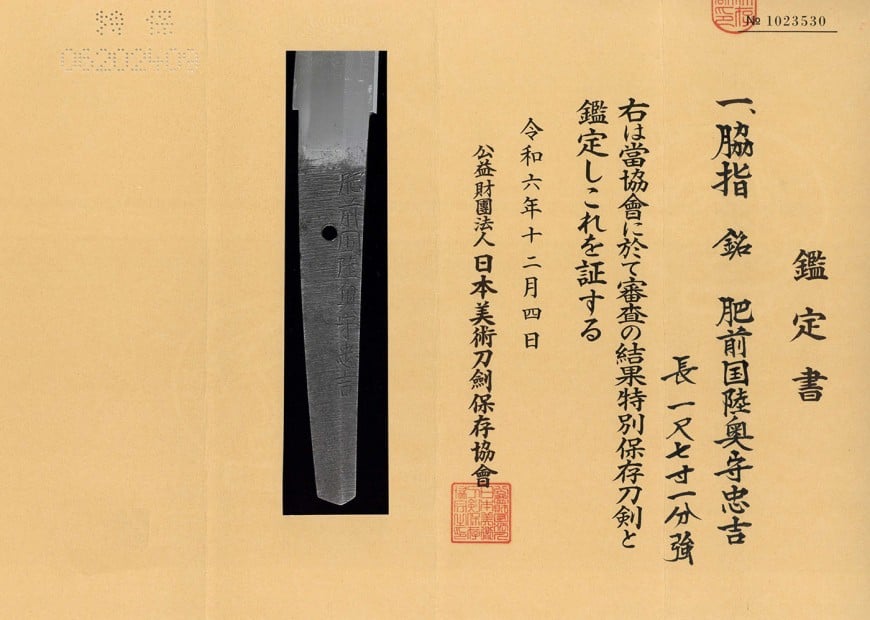 № 1023530
鑑定書
一、脇指 銘 肥前国陸奥守忠吉
長一尺七寸一分強
右は當協會に於て審査の結果特別保存刀剣と
鑑定しこれを証する
令和六年十二月四日
公益財團法人日本美術刀劍保存協會
肥前国陸奥守忠吉
特保
06202409